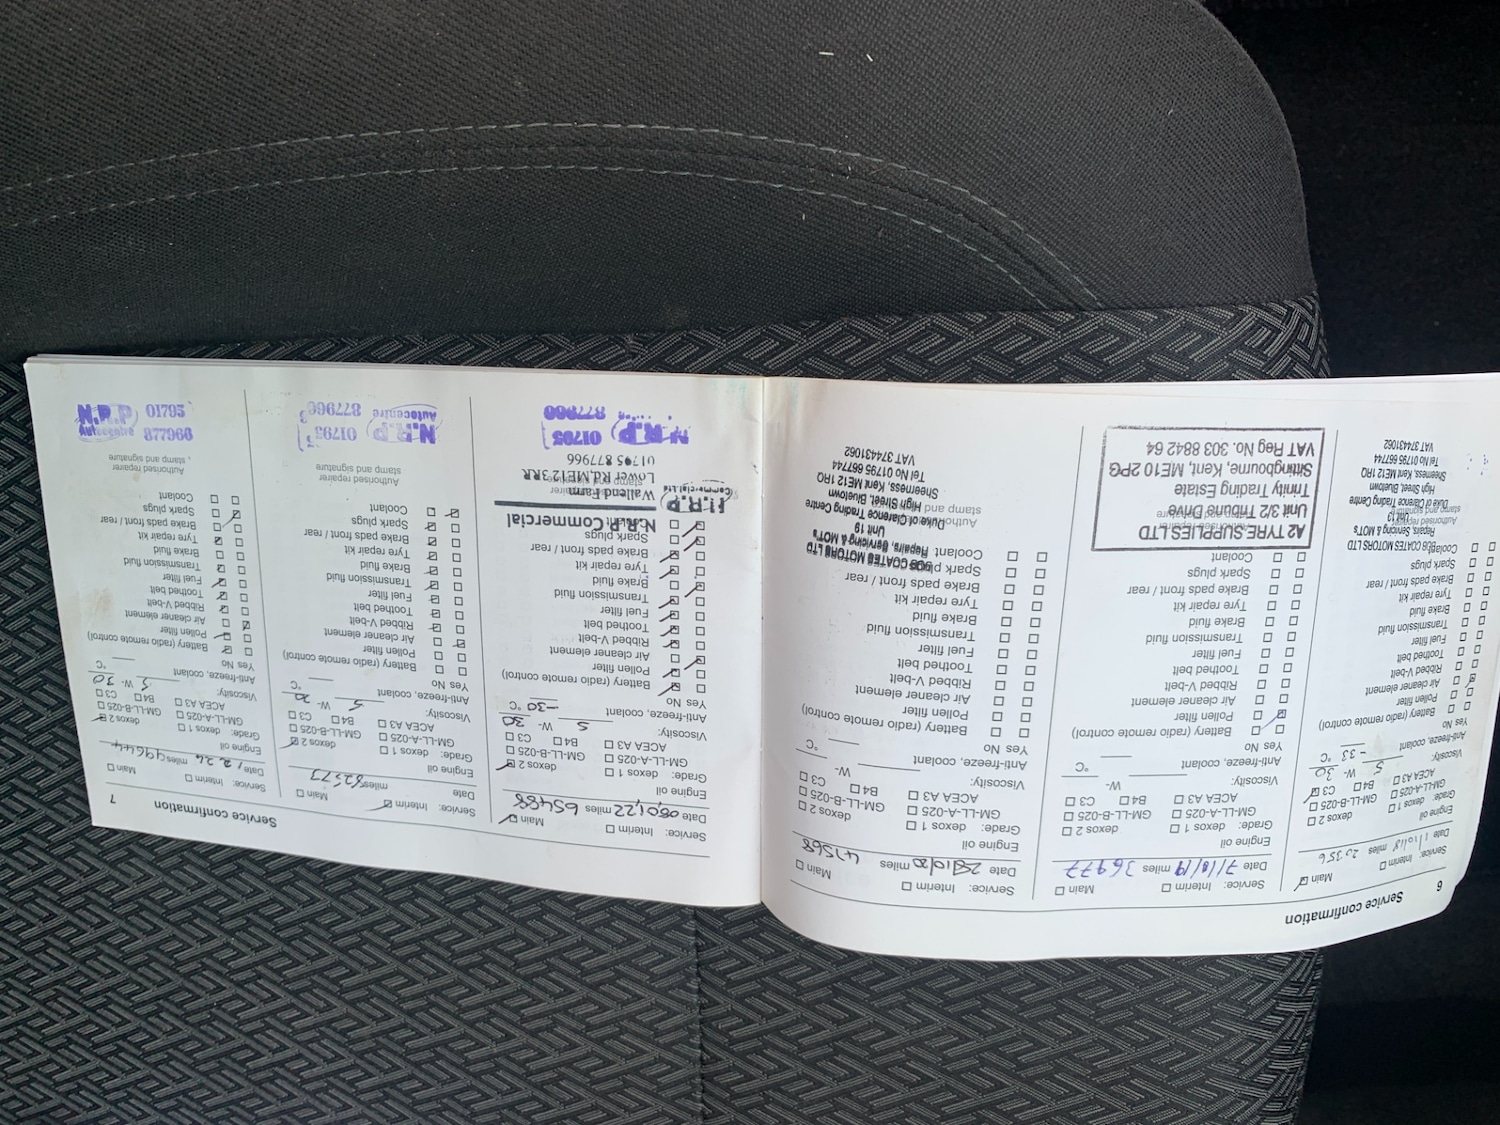 6
Service confirmation
Service: Interim Main
Date miles 20356
Engine oil
Grade: dexos 1 dexos 2
GM-LL-A-025 GM-LL-B-025
ACEA A3 B4 C3
Viscosity: 5 W- 30
Anti-freeze, coolant -33 °C
Yes No
Battery (radio remote control)
Pollen filter
Air cleaner element
Ribbed V-belt
Toothed belt
Fuel filter
Transmission fluid
Brake fluid
Tyre repair kit
Brake pads front / rear
Spark plugs
Coolant
BOB COATES MOTORS LTD
Repairs, Servicing & MOT's
Unit 19
Duke of Clarence Trading Centre
High Street, Bluetown
Sheerness, Kent ME12 1RQ
Tel No 01795 667744
VAT 374431062
Service: Interim Main
Date 7/10/19 miles 36977
Engine oil
Grade: dexos 1 dexos 2
GM-LL-A-025 GM-LL-B-025
ACEA A3 B4 C3
Viscosity: W-
Anti-freeze, coolant °C
Yes No
Battery (radio remote control)
Pollen filter
Air cleaner element
Ribbed V-belt
Toothed belt
Fuel filter
Transmission fluid
Brake fluid
Tyre repair kit
Brake pads front / rear
Spark plugs
Coolant
A2 TYRE SUPPLIES LTD
Unit 3/2 Tribune Drive
Trinity Trading Estate
Sittingbourne, Kent, ME10 2PG
VAT Reg No. 303 8842 64
Service: Interim Main
Date 28/10/20 miles 41568
Engine oil
Grade: dexos 1 dexos 2
GM-LL-A-025 GM-LL-B-025
ACEA A3 B4 C3
Viscosity: W-
Anti-freeze, coolant °C
Yes No
Battery (radio remote control)
Pollen filter
Air cleaner element
Ribbed V-belt
Toothed belt
Fuel filter
Transmission fluid
Brake fluid
Tyre repair kit
Brake pads front / rear
Spark plugs
Coolant
BOB COATES MOTORS LTD
Repairs, Servicing & MOT's
Unit 19
Duke of Clarence Trading Centre
High Street, Bluetown
Sheerness, Kent ME12 1RQ
Tel No 01795 667744
VAT 374431062
Service confirmation
7
Service: Interim Main
Date miles 65488
Engine oil
Grade: dexos 1 dexos 2
GM-LL-A-025 GM-LL-B-025
ACEA A3 B4 C3
Viscosity: 5 W- 30
Anti-freeze, coolant, -30 °C
Yes No
Battery (radio remote control)
Pollen filter
Air cleaner element
Ribbed V-belt
Toothed belt
Fuel filter
Transmission fluid
Brake fluid
Tyre repair kit
Brake pads front / rear
Spark plugs
N.R.P Commercial
Wallend Farm
Lower Rd, ME12 3RR
01795 877966
N.R.P 01795
877966
Service: Interim Main
Date miles
Engine oil
Grade: dexos 1 dexos 2
GM-LL-A-025 GM-LL-B-025
ACEA A3 B4 C3
Viscosity: 5 W- 30
Anti-freeze, coolant, °C
Yes No
Battery (radio remote control)
Pollen filter
Air cleaner element
Ribbed V-belt
Toothed belt
Fuel filter
Transmission fluid
Brake fluid
Tyre repair kit
Brake pads front / rear
Spark plugs
Coolant
Authorised repairer
stamp and signature
N.R.P 01795
Autocentre 877966
Service: Interim Main
Date miles 99644
Engine oil
Grade: dexos 1 dexos 2
GM-LL-A-025 GM-LL-B-025
ACEA A3 B4 C3
Viscosity: 5 W- 30
Anti-freeze, coolant, °C
Yes No
Battery (radio remote control)
Pollen filter
Air cleaner element
Ribbed V-belt
Toothed belt
Fuel filter
Transmission fluid
Brake fluid
Tyre repair kit
Brake pads front / rear
Spark plugs
Coolant
Authorised repairer
stamp and signature
N.R.P 01795
Autocentre 877966